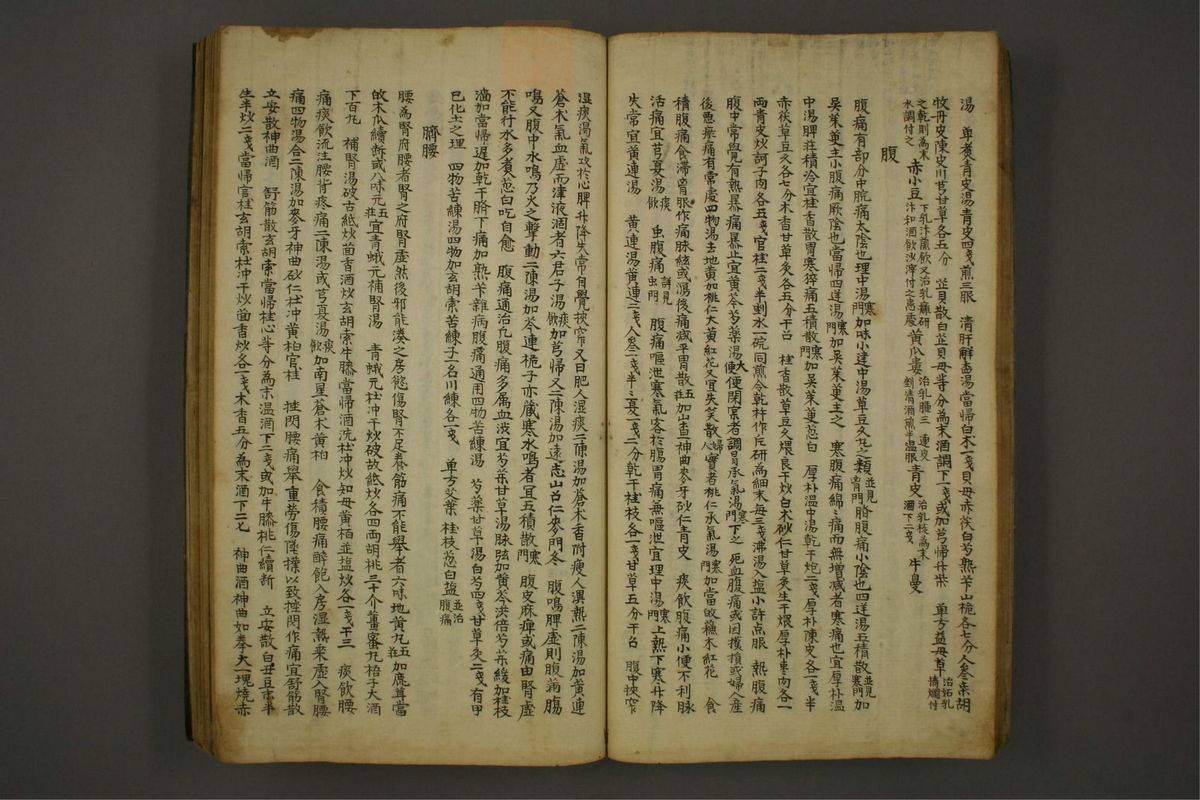 湯 單煮青皮湯青皮四戔煎三服 清肝解鬱湯當歸白朮一戔貝母赤茯白芍熟芐山梔各七分人參柴胡
牧丹皮陳皮川芎甘草各五分 芷貝散白芷貝母等分為末酒調下一戔或加芎歸升柴 單方益母草治妬乳擣爛付
之乾則為末水調付之 赤小豆 黃瓜蔞 治乳腫三 連皮剉清酒煎半溫服 青皮 治乳核為末酒下二戔 牛蔓
腹
腹痛有部分中脘痛太陰也理中湯寒門加味小建中湯草豆久丸之類並見胃門臍腹痛小陰也四逆湯五積散並見寒門加
吳茱萸主小腹痛厥陰也當歸四逆湯寒門加吳茱萸主之 寒腹痛綿綿痛而無增減者寒痛也宜厚朴溫
中湯脾莊積冷宜桂香散胃寒猝痛五積散寒門加吳茱萸蔥白 厚朴溫中湯乾干炮二戔厚朴陳皮各一戔半
赤茯草豆久各七分木香甘草炙各五分干召 桂香散草豆久煨良干炒白朮砂仁甘草炙生干煨厚朴棗肉各一
兩青皮炒訶子肉各五戔官桂二戔半剉水一碗同煎令乾杵作片研為細末每三戔沸湯入塩小許点服 熱腹痛
腹中常覺有熱暴痛暴止宜黃芩芍藥湯大便便閉宲者調胃承氣湯寒門下之 死血腹痛或因撲損或婦人產
後惡瘀痛有常處四物湯去地黃加桃仁大黃紅花又宜失笑散婦人實者桃仁承氣湯寒門加當皈蘓木紅花 食
積腹痛食滯曾服作痛脉絃或瀉後痛減平胃散五莊加山査神曲麥牙砂仁青皮 痰飮腹痛小便不利脉
活痛宜芎夏湯痰飮 虫腹痛詳見虫門 腹痛嘔泄寒氣客於膓胃痛無嘔泄宜理中湯寒門上熱下寒升降
失常宜黃連湯 黃連湯黃連二戔人參一戔半半夏一戔二分乾干桂枝各一戔甘草五分干召 腹中挾窄
湿痰濁氣攻於心脾升降失常自覺挾窄又曰肥人湿痰二陳湯加蒼朮香附瘦人湨熱二陳湯加黃連
蒼朮氣血虛而津液涸者六君子湯痰飮加芎歸又二陳湯加遠志山召仁麥門冬 腹鳴脾虛則腹滿膓
鳴又腹中水鳴乃火之擊動二陳湯加芩連梔子亦蔵寒水鳴者宜五積散寒門 腹皮麻痺或痛由腎虛
不能行水多煮蔥白吃自愈 腹痛通治凢腹痛多属血渋宜芍芐甘草湯脉弦加黃芩洪倍芍芐緩加桂枝
濇加當歸遲加乾干臍下痛加熟芐雜病腹痛通用四物苦練湯 芍藥甘草湯白芍四戔甘草炙二戔有甲
已化土之理 四物苦練湯四物加玄胡索苦練子一名川練各一戔 單方艾葉 桂枝蔥白塩並治腹痛
臍腰
腰為腎府腰者腎之府腎虛然後邪能湊之房慾傷腎不足養筋痛不能舉者六味地黃丸五莊加鹿茸當
故木瓜續斷或八味元五莊宜青蛾元補腎湯 青蛾元杜冲干炒破故紙炒各四両胡桃三十个薑蜜丸梧子大酒
下百丸 補腎湯破古紙炒茴香酒炒玄胡索牛膝當帰酒洗杜冲炒知母黃栢並塩炒各一戔干三 痰飮腰
痛痰飮流注腰背疼痛二陳湯或芎夏湯痰飮加南星蒼朮黃柏 食積腰痛醉飽入房湿熱乘虛入腎腰
痛四物湯合二陳湯加麥牙神曲砂仁杜冲黃柏官桂 挫閃腰痛舉重勞傷墜撲以致挫閃作痛宜舒筋散
立安散神曲酒 舒筋散玄胡索當歸桂心等分為末温酒下二戔或加牛膝桃仁續斷 立安散白丑豆末半
生半炒二戔當帰官桂玄胡索杜冲干炒茴香炒各一戔木香五分為末酒下二匕 神曲酒神曲如拳大一塊燒赤